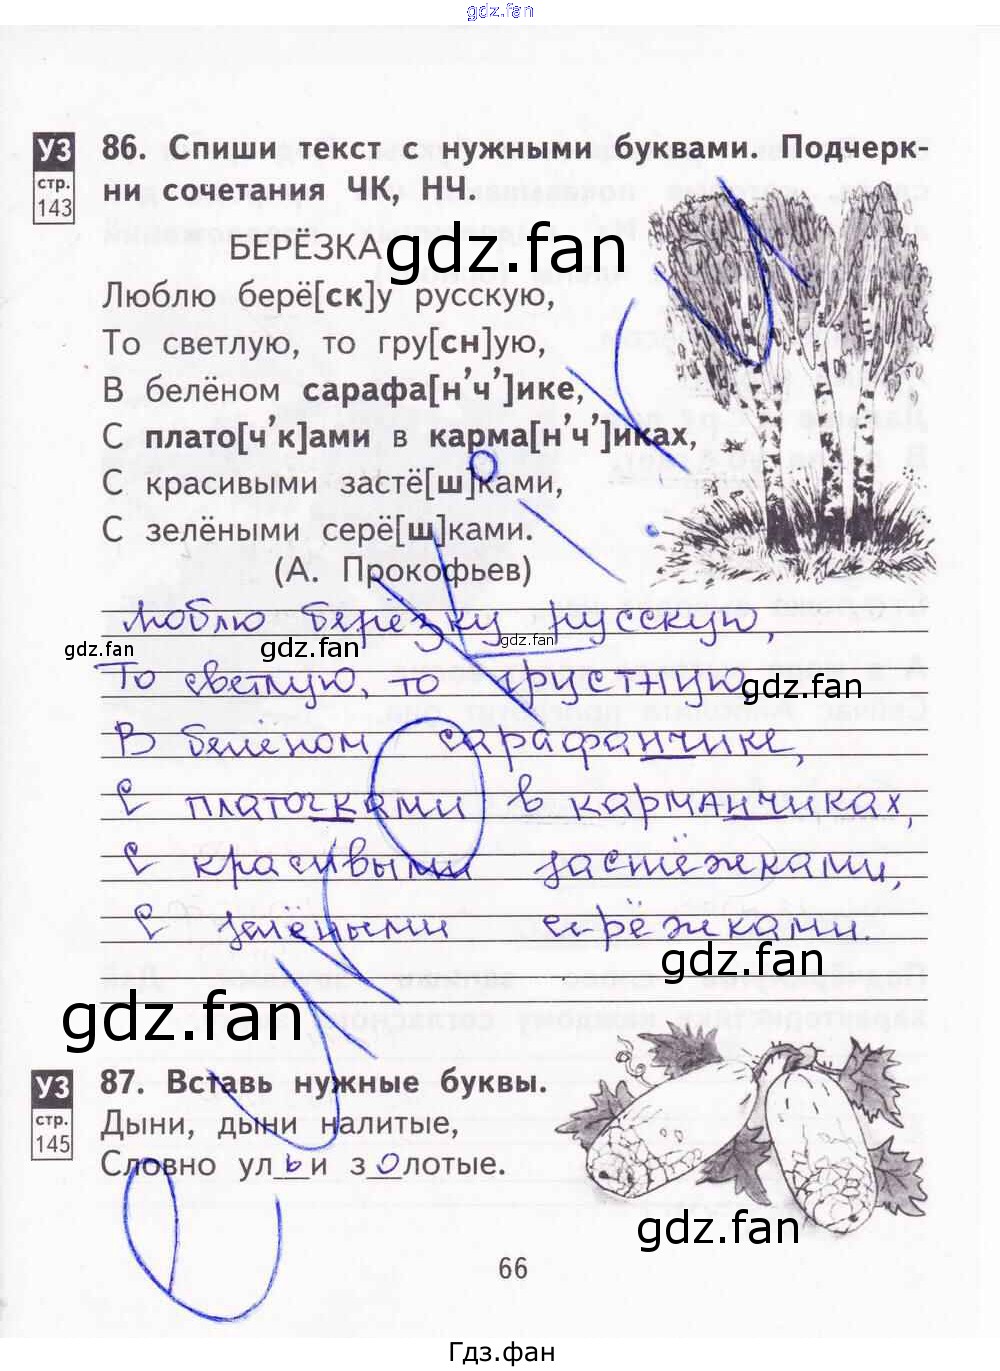 gdz.fan
УЗ
стр.
143
86. Спиши текст с нужными буквами. Подчерк-
ни сочетания ЧК, НЧ.
БЕРЁЗКА
gdz.fan
Люблю берё[ск]у русскую,
То светлую, то гру[сн]ую,
В белёном сарафа[н’ч’]ике,
С плато[ч’к]ами в карма[н’ч’]иках,
С красивыми застё[ш]ками,
С зелёными серё[ш]ками.
(А. Прокофьев)
Люблю берёзку русскую,
gdz.fan gdz.fan gdz.fan
То светлую, то грустную,
gdz.fan
В белёном сарафанчике,
С платочками в карманчиках,
С красивыми застёжками,
С зелёными серёжками.
gdz.fan
gdz.fan
УЗ
стр.
145
87. Вставь нужные буквы.
Дыни, дыни налитые,
Словно ульи золотые.
gdz.fan
66
Гдз.фан